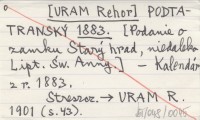 [URAM Rehor] PODTA-
TRANSKÝ 1883. [Podanie o
zámku Starý hrad, niedaleko
Lipt. Sv. Anny.] — Kalendár
z r. 1883.
Stresoz. → URAM R.
1901 (s. 43).